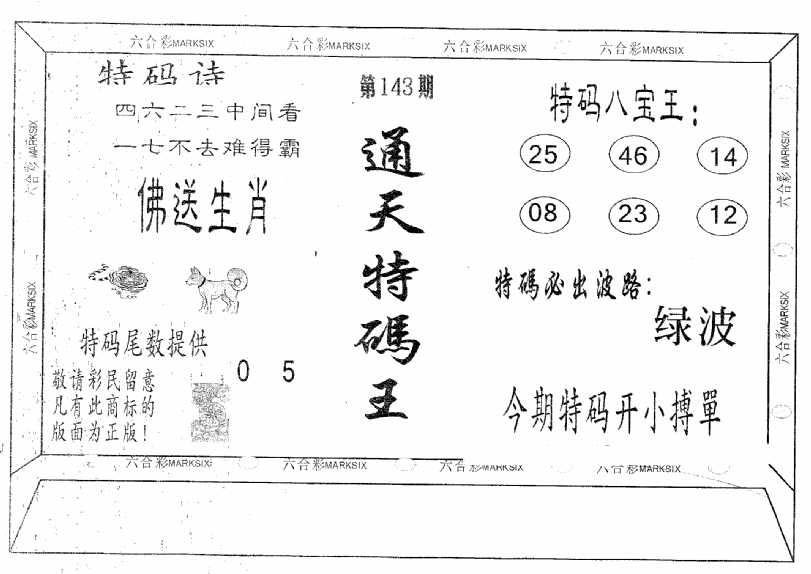 六合彩MARKSIX 六合彩MARKSIX 六合彩MARKSIX 六合彩MARKSIX
特码诗
四六二三中间看
一七不去难得霸
佛送生肖
特码尾数提供
0 5
敬请彩民留意
凡有此商标的
版面为正版!
第143期
通天特碼王
特码八宝王:
25 46 14
08 23 12
特碼必出波路:
绿波
今期特码开小搏單
六合彩MARKSIX
六合彩MARKSIX
六合彩MARKSIX
六合彩MARKSIX
六合彩MARKSIX 六合彩MARKSIX 六合彩MARKSIX 六合彩MARKSIX